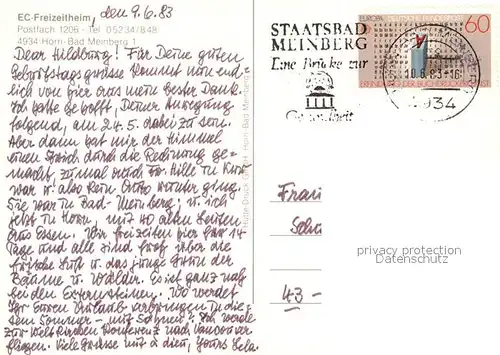 EC-Freizeitheim, den 9.6.83
Postfach 1206 - Tel 05234/848
4934 Horn-Bad Meinberg 1
Dear Hildburg! Für Deine guten
Geburtstagsgrüsse kommt nun end
lich von hier aus mein bester Dank.
Ich hatte gehofft, Deiner Anregung
folgend, am 24.5. dabei zu sein.
Aber dann hat mir der Himmel
einen Strich durch die Rechnung ge-
macht, zumal auch Hille in Kur
war u. also kein Auto runter ging.
Sie war in Bad-Meinberg; u. ich
jetzt in Horn, mit 40 alten Leuten
aus Essen. Wir freizeiten hier für 14
Tage und alle sind froh über die
frische Luft u. das junge Grün der
Bäume u. Wälder. Es ist ganz nah
bei den Externsteinen. Wo werdet
Ihr Euren Urlaub verbringen in die-
sem Sommer - mit Ich werde
zur Weltkirchen Konferenz nach Vancouver
fliegen. Viele Grüsse mit a dieu, Yours Lela
Horn-Bad Meinberg
STAATSBAD
MEINBERG
Eine Brücke zur
Gesundheit
EUROPA DEUTSCHE BUNDESPOST
60
ERFINDUNG DES BUCHDRUCKS
10.6.83-16
4934
Frau
Schu
43-
privacy protection
DATENSCHUTZ